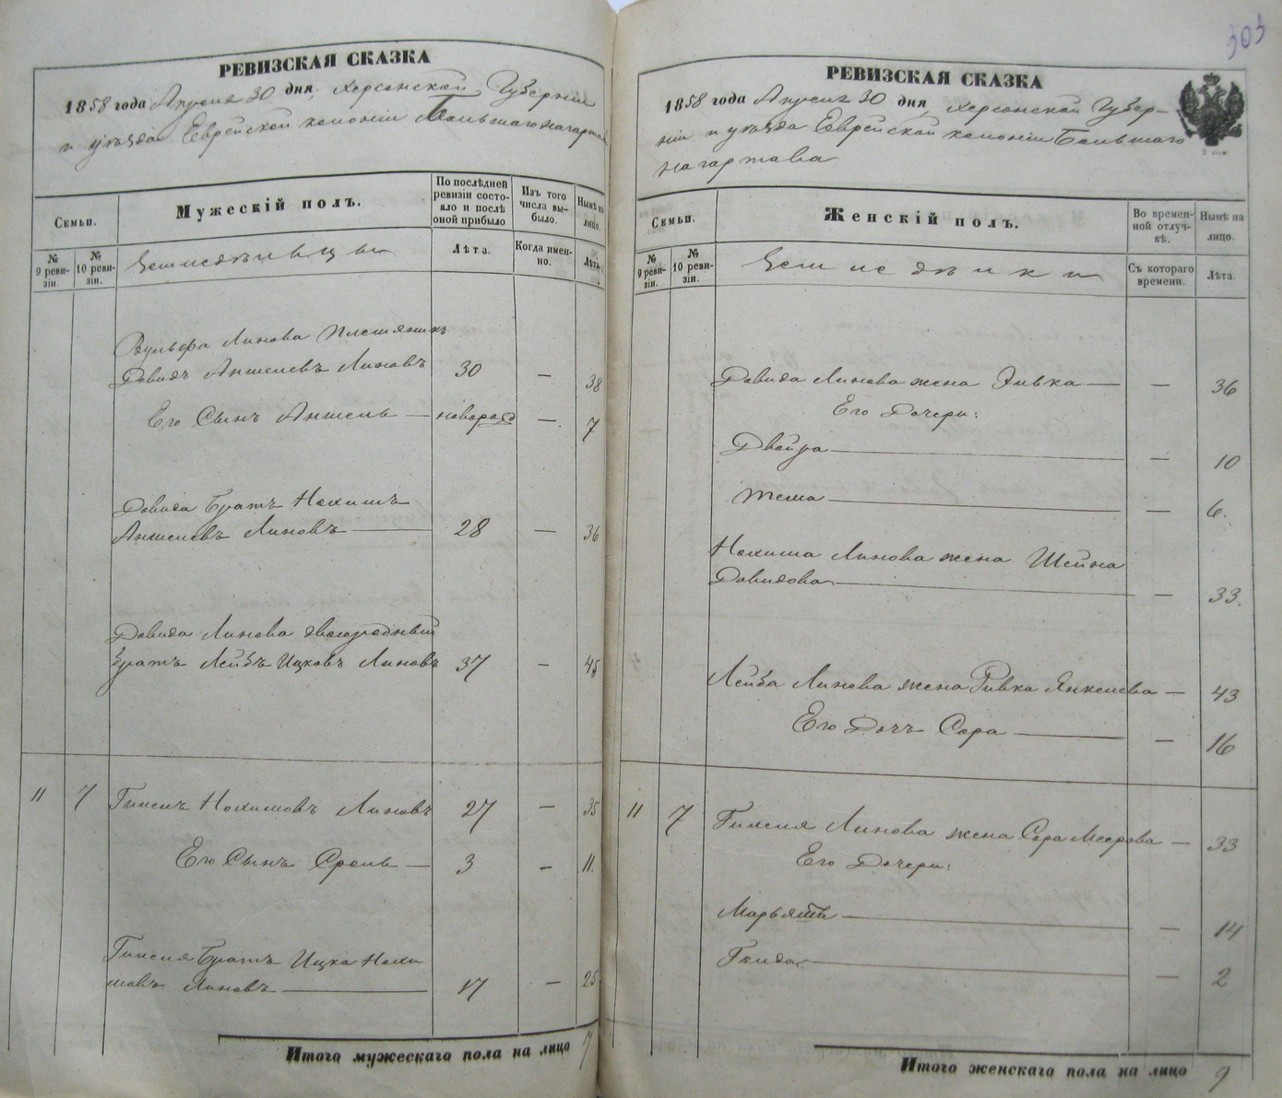 РЕВИЗСКАЯ СКАЗКА
1858 года Апреля 30 дня, Херсонской Губерніи
и уѣзда Еврейской колоніи Большаго нагартава
Семьи.
Мужескій полъ.
По послѣдней ревизіи состояло и послѣ оной прибыло
Изъ того числа выбыло.
Нынѣ на лицо.
№ 9 ревизіи.
№ 10 ревизіи.
Земледѣльцы
Лѣта.
Когда именно.
Лѣта.
Вульфа Линова племянникъ
Давидъ Аншелевъ Линовъ 30 — 38
Его Сынъ Аншель — новорожд —. 7
Давида Братъ Нохимъ
Аншелевъ Линовъ — 28 — 36
Давида Линова двоюродный
братъ Лейбъ Ицковъ Линовъ 37 — 45
11 7 Гимпель Нохимовъ Линовъ 27 — 35
Его Сынъ Сроль — 3 — 11.
Братъ Ицка Нохи
мовъ Линовъ — 17 — 25
Итого мужескаго пола на лицо 7
303
РЕВИЗСКАЯ СКАЗКА
1858 года Апреля 30 дня, Херсонской Губер-
ніи и уѣзда Еврейской колоніи Большаго
нагартава
2 коп.
Семьи.
Женскій полъ.
Во временной отлучкѣ.
Нынѣ на лицо.
№ 9 ревизіи.
№ 10 ревизіи.
Земледѣлки
Съ котораго времени.
Лѣта.
Давида Линова жена Ривка — — 36
Его Дочери:
Двейра — — 10
Тема — — 6.
Нохима Линова жена Шейна
Давидова — — 33.
Лейба Линова жена Ривка Янкелева — 43
Его Дочь Сора — — 16
11 7 Линова жена Сора Меерова — 33
Его Дочери:
Марьямъ — — 14
Генда — — 2
Итого женскаго пола на лицо 9